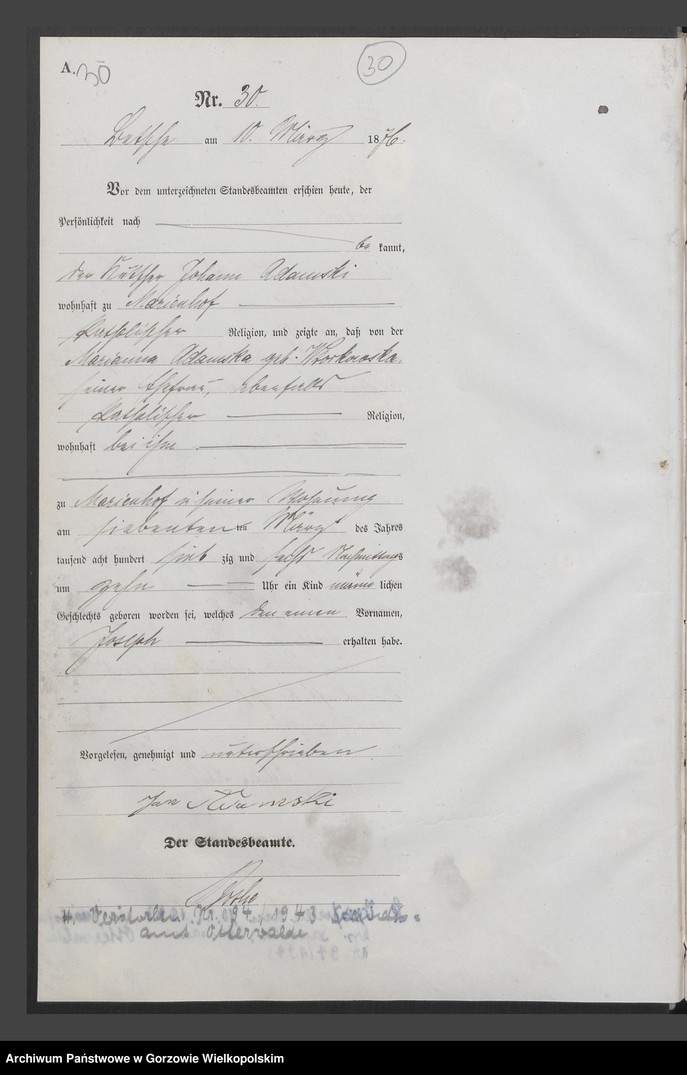 A. 30
30
Nr. 30.
Betsche am 10. März 1876.
Vor dem unterzeichneten Standesbeamten erschien heute, der
Persönlichkeit nach
be kannt,
der Kutscher Johann Adamski
wohnhaft zu Marienhof
katholischer Religion, und zeigte an, daß von der
Marianna Adamska geb.
seiner Ehefrau, ebenfalls
katholischer Religion,
wohnhaft bei ihm
zu Marienhof in seiner Wohnung
am siebenten ten März des Jahres
tausend acht hundert sieb zig und sechs Nachmittags
um zehn Uhr ein Kind männ lichen
Geschlechts geboren worden sei, welches den einen Vornamen,
Joseph erhalten habe.
Vorgelesen, genehmigt und unterschrieben
Jan Adamski
Der Standesbeamte.
H. Verstorben Nr. 1943
amt Osterwalde
Archiwum Państwowe w Gorzowie Wielkopolskim